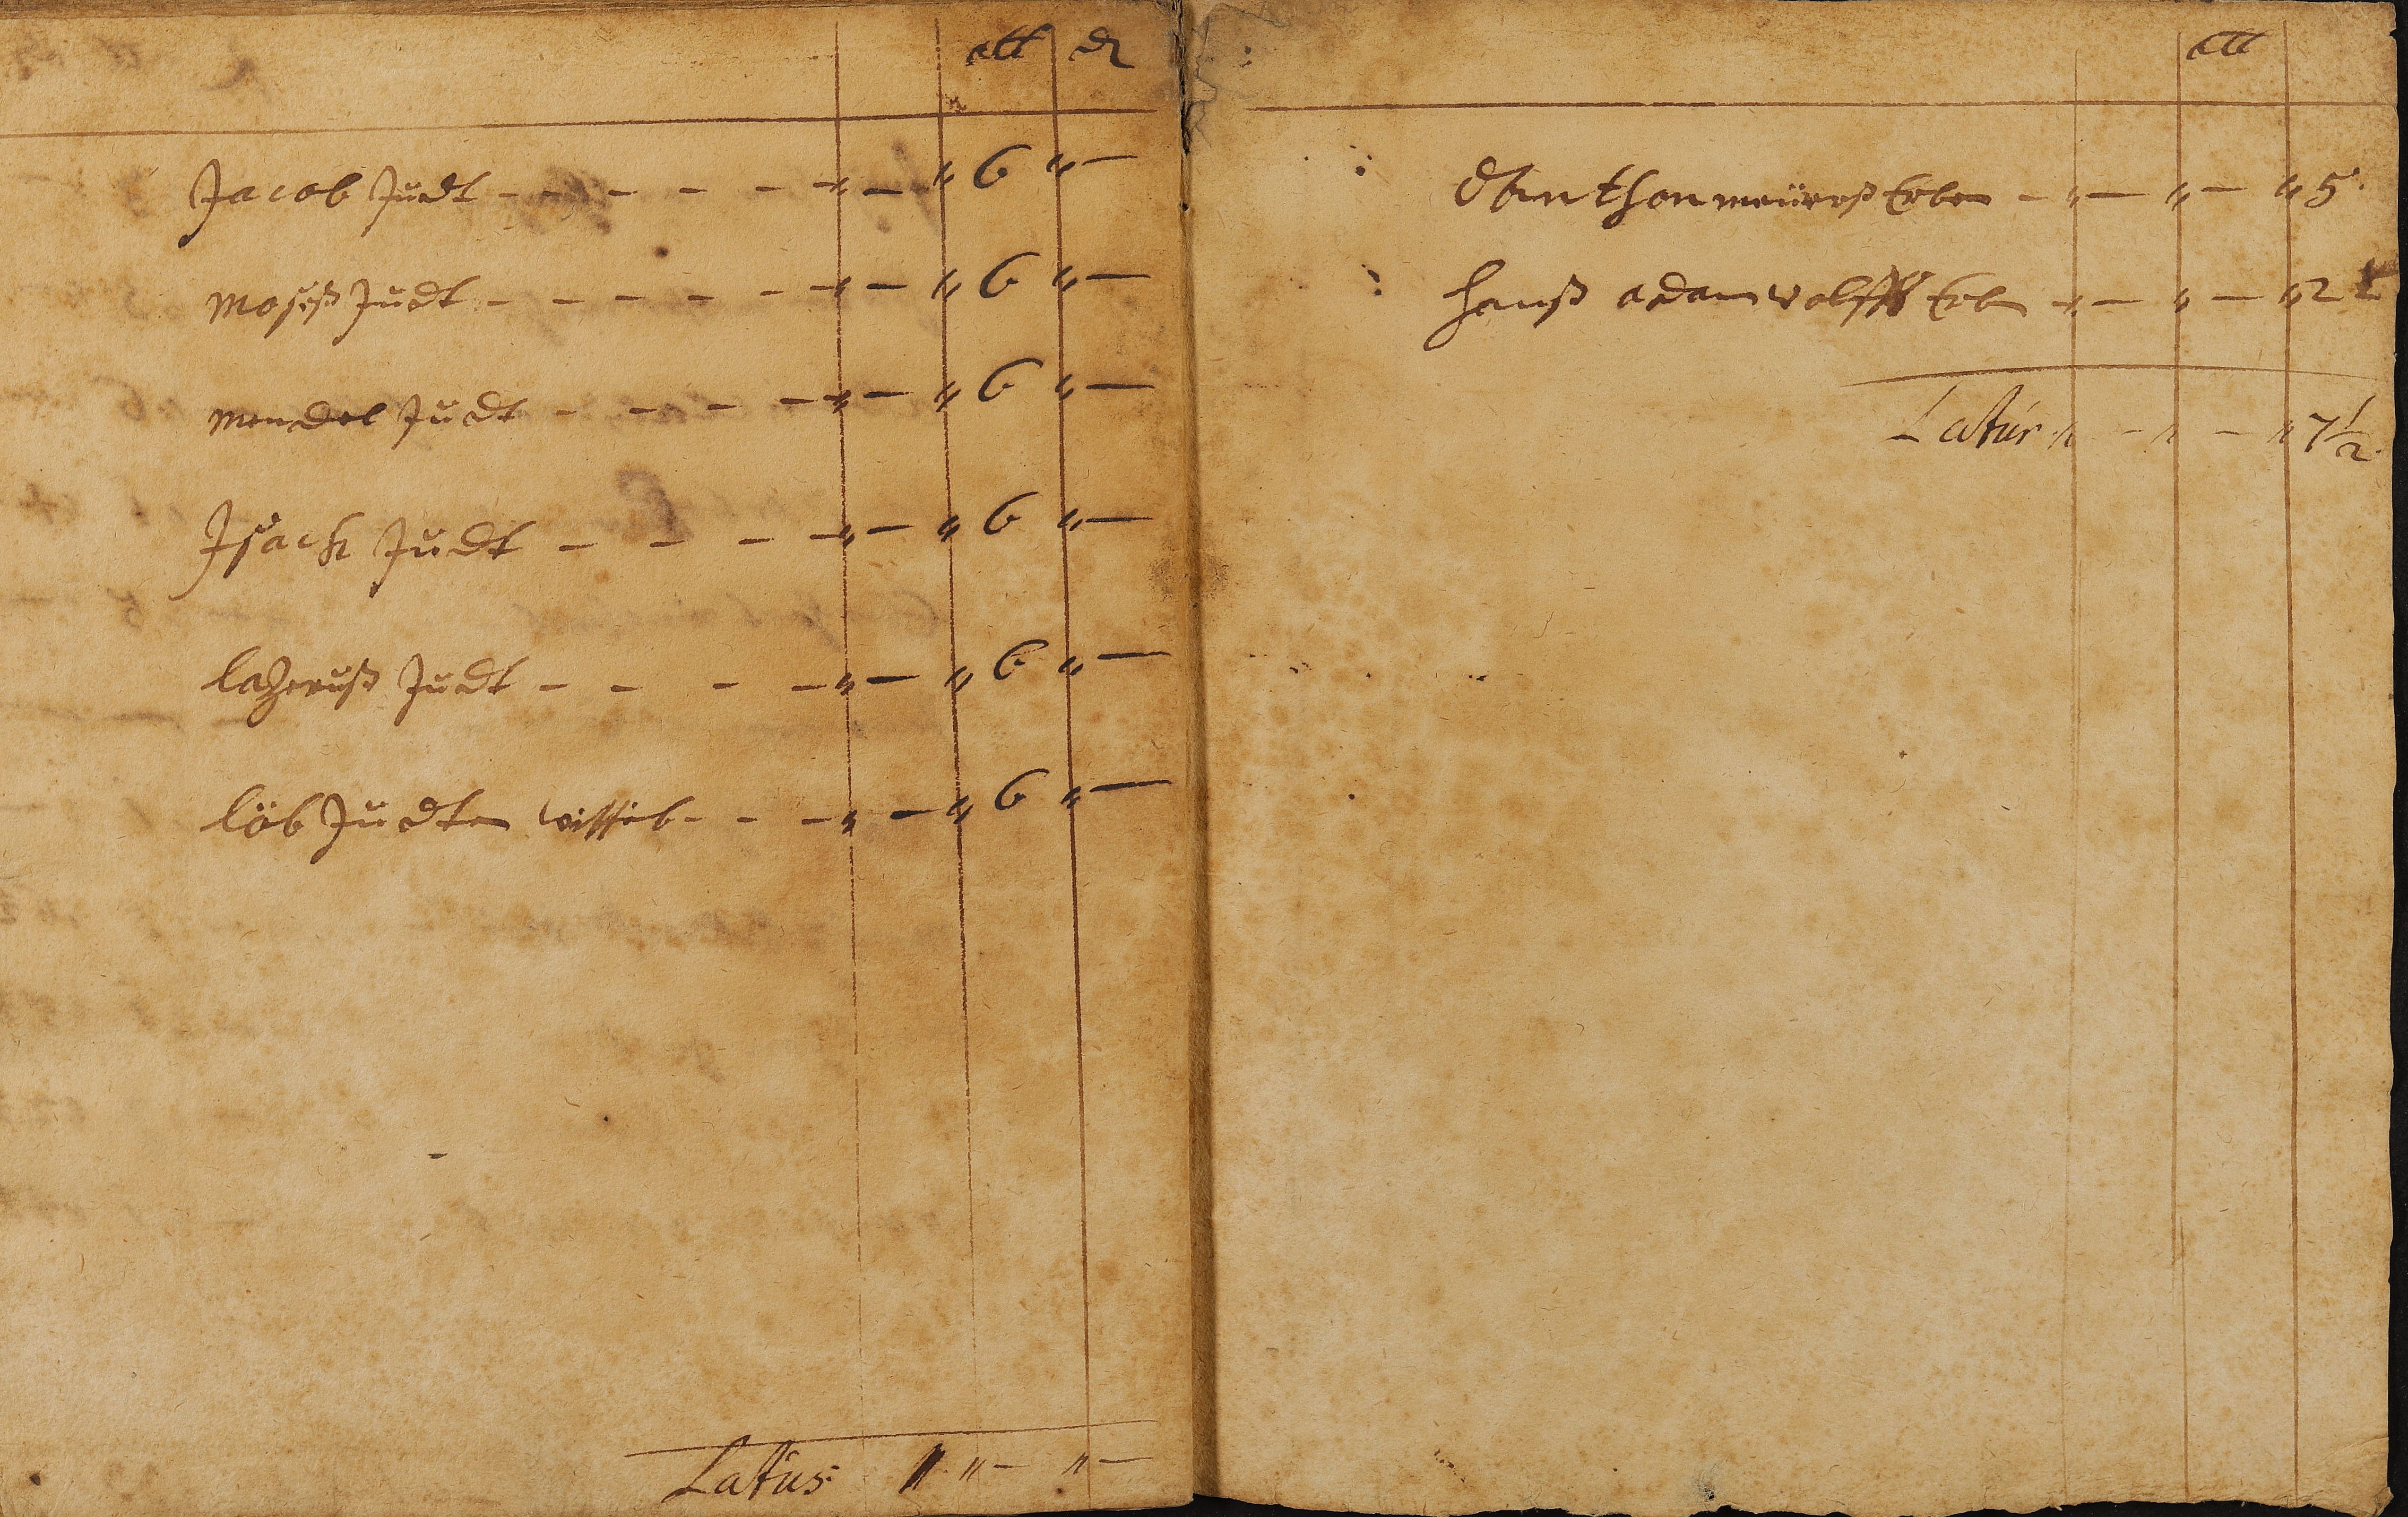 alb ₰
Jacob Judt - - - - - „ — „ 6 „ —
Moseß Judt - - - - - „ — „ 6 „ —
Mendel Judt - - - - „ — „ 6 „ —
Isack Judt - - - - „ — „ 6 „ —
lazeruß Judt - - - - „ — „ 6 „ —
löb Judten wittib - - - „ — „ 6 „ —
Latus 1 „ — „ —
alb
Anthon meüreß Erben - „ — „ — „ 5.
Hanß adam wolffß Erb „ — „ — „ 2 ½
Latus „ - „ — „ 7½.